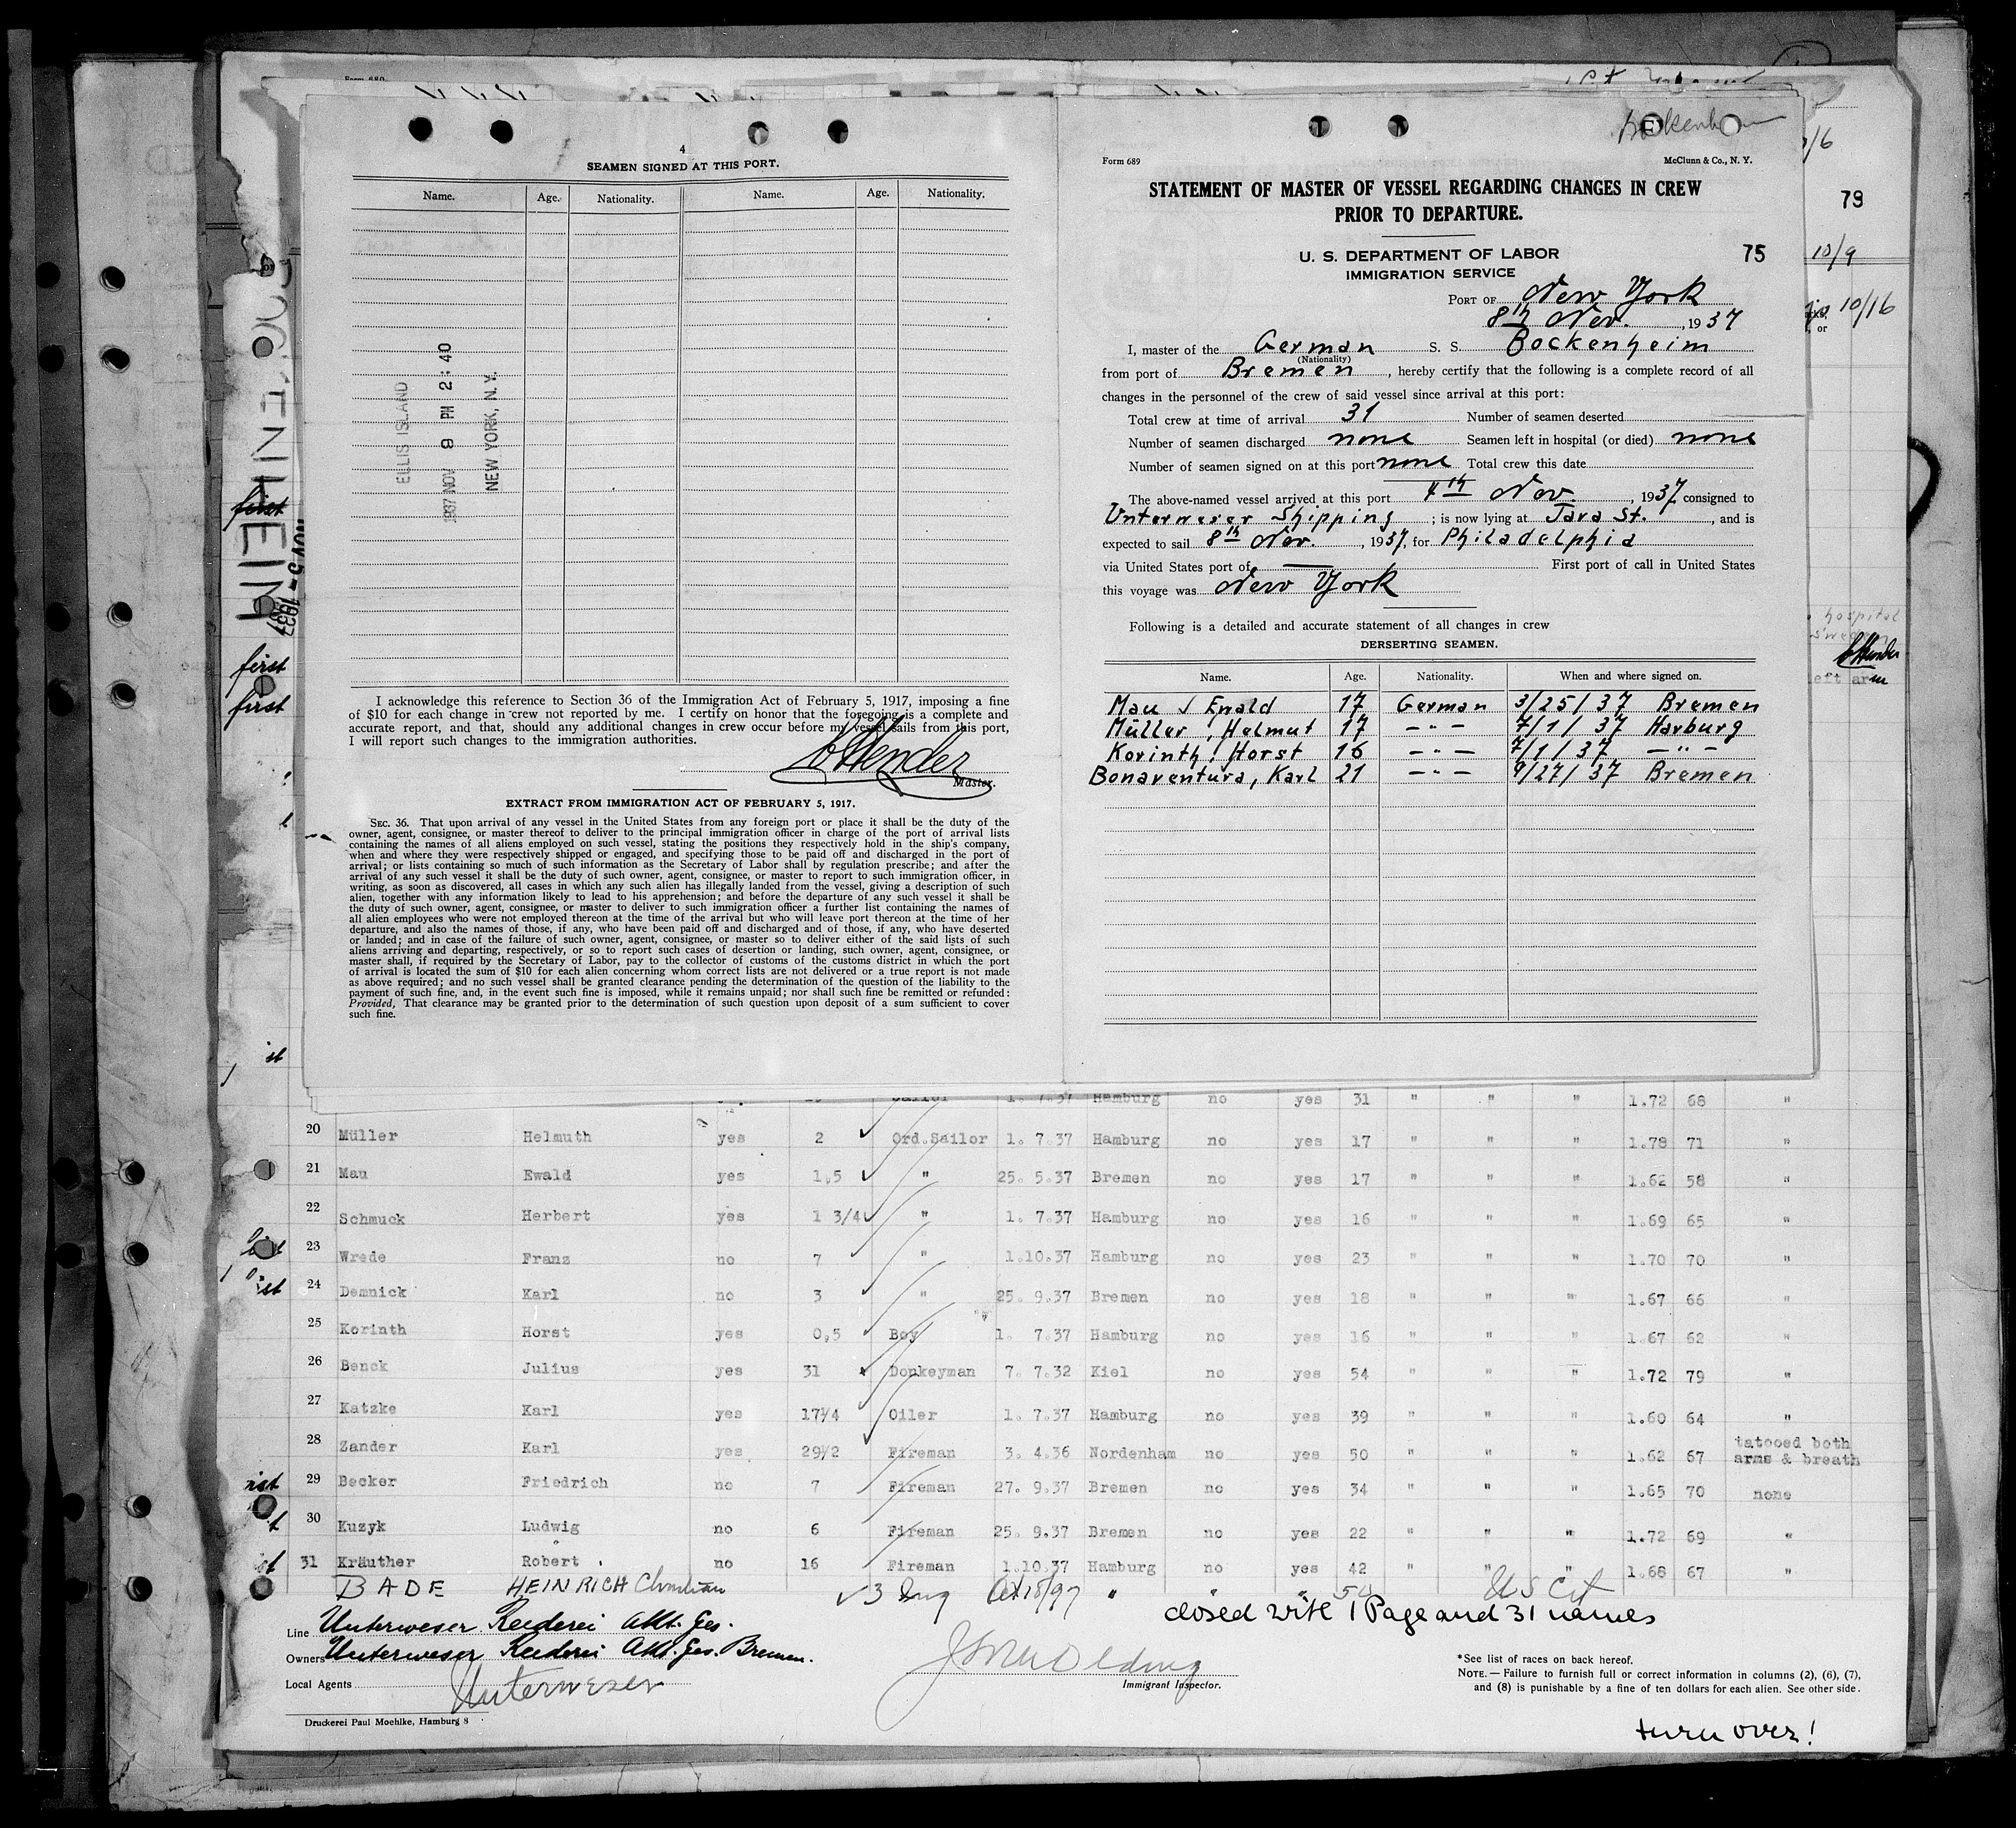 4
SEAMEN SIGNED AT THIS PORT.
Name. Age. Nationality. Name. Age. Nationality.
ELLIS ISLAND
1937 NOV 9 PM 2:40
NEW YORK, N. Y.
I acknowledge this reference to Section 36 of the Immigration Act of February 5, 1917, imposing a fine
of $10 for each change in crew not reported by me. I certify on honor that the foregoing is a complete and
accurate report, and that, should any additional changes in crew occur before my vessel sails from this port,
I will report such changes to the immigration authorities.
Master.
EXTRACT FROM IMMIGRATION ACT OF FEBRUARY 5, 1917.
SEC. 36. That upon arrival of any vessel in the United States from any foreign port or place it shall be the duty of the
owner, agent, consignee, or master thereof to deliver to the principal immigration officer in charge of the port of arrival lists
containing the names of all aliens employed on such vessel, stating the positions they respectively hold in the ship's company,
when and where they were respectively shipped or engaged, and specifying those to be paid off and discharged in the port of
arrival; or lists containing so much of such information as the Secretary of Labor shall by regulation prescribe; and after the
arrival of any such vessel it shall be the duty of such owner, agent, consignee, or master to report to such immigration officer, in
writing, as soon as discovered, all cases in which any such alien has illegally landed from the vessel, giving a description of such
alien, together with any information likely to lead to his apprehension; and before the departure of any such vessel it shall be
the duty of such owner, agent, consignee, or master to deliver to such immigration officer a further list containing the names of
all alien employees who were not employed thereon at the time of the arrival but who will leave port thereon at the time of her
departure, and also the names of those, if any, who have been paid off and discharged and of those, if any, who have deserted
or landed; and in case of the failure of such owner, agent, consignee, or master so to deliver either of the said lists of such
aliens arriving and departing, respectively, or so to report such cases of desertion or landing, such owner, agent, consignee, or
master shall, if required by the Secretary of Labor, pay to the collector of customs of the customs district in which the port
of arrival is located the sum of $10 for each alien concerning whom correct lists are not delivered or a true report is not made
as above required; and no such vessel shall be granted clearance pending the determination of the question of the liability to the
payment of such fine, and, in the event such fine is imposed, while it remains unpaid; nor shall such fine be remitted or refunded:
Provided, That clearance may be granted prior to the determination of such question upon deposit of a sum sufficient to cover
such fine.
Form 689 McClunn & Co., N. Y.
STATEMENT OF MASTER OF VESSEL REGARDING CHANGES IN CREW
PRIOR TO DEPARTURE.
U. S. DEPARTMENT OF LABOR 75
IMMIGRATION SERVICE
PORT OF New York
8th Nov., 1937
I, master of the German S. S. Bockenheim
(Nationality)
from port of Bremen, hereby certify that the following is a complete record of all
changes in the personnel of the crew of said vessel since arrival at this port:
Total crew at time of arrival 31 Number of seamen deserted
Number of seamen discharged none Seamen left in hospital (or died) none
Number of seamen signed on at this port none Total crew this date
The above-named vessel arrived at this port 4th Nov, 1937 consigned to
Unterweser Shipping; is now lying at Java St., and is
expected to sail 8th Nov., 1937, for Philadelphia
via United States port of — First port of call in United States
this voyage was New York
Following is a detailed and accurate statement of all changes in crew
DERSERTING SEAMEN.
Name. Age. Nationality. When and where signed on.
Mau, Ewald 17 German 3/25/37 Bremen
Müller, Helmut 17 — " — 7/1/37 Harburg
Korinth, Horst 16 — " — 7/1/37 — " —
Bonaventura, Karl 21 — " — 9/27/37 Bremen
79
10/9
10/16
hospital
left arm
first
NOV 5 - 1937
first
first
Sailor 1. 7.37 Hamburg no yes 31 " " " 1.72 68 "
20 Müller Helmuth yes 2 Ord.Sailor 1. 7.37 Hamburg no yes 17 " " " 1.78 71 "
21 Mau Ewald yes 1,5 " 25. 5.37 Bremen no yes 17 " " " 1.62 58 "
22 Schmuck Herbert yes 1 3/4 " 1. 7.37 Hamburg no yes 16 " " " 1.69 65 "
23 Wrede Franz no 7 " 1.10.37 Hamburg no yes 23 " " " 1.70 70 "
24 Demnick Karl no 3 " 25. 9.37 Bremen no yes 18 " " " 1.67 66 "
25 Korinth Horst yes 0,5 Boy 1. 7.37 Hamburg no yes 16 " " " 1.67 62 "
26 Benck Julius yes 31 Donkeyman 7. 7.32 Kiel no yes 54 " " " 1.72 79 "
27 Katzke Karl yes 17 1/4 Oiler 1. 7.37 Hamburg no yes 39 " " " 1.60 64 "
28 Zander Karl yes 29 1/2 Fireman 3. 4.36 Nordenham no yes 50 " " " 1.62 67 tatooed both
arms & breath
29 Becker Friedrich no 7 Fireman 27. 9.37 Bremen no yes 34 " " " 1.65 70 none
30 Kuzyk Ludwig no 6 Fireman 25. 9.37 Bremen no yes 22 " " " 1.72 69 "
31 Kräuther Robert no 16 Fireman 1.10.37 Hamburg no yes 42 " " " 1.68 67 "
BADE HEINRICH Christian 3 Eng " " 54 US Cit
closed with 1 Page and 31 names
Line Unterweser Reederei Akt. Ges.
Owners Unterweser Reederei Akt. Ges. Bremen.
Local Agents Unterweser
Immigrant Inspector.
*See list of races on back hereof.
NOTE.—Failure to furnish full or correct information in columns (2), (6), (7),
and (8) is punishable by a fine of ten dollars for each alien. See other side.
Druckerei Paul Moehlke, Hamburg 8
turn over!